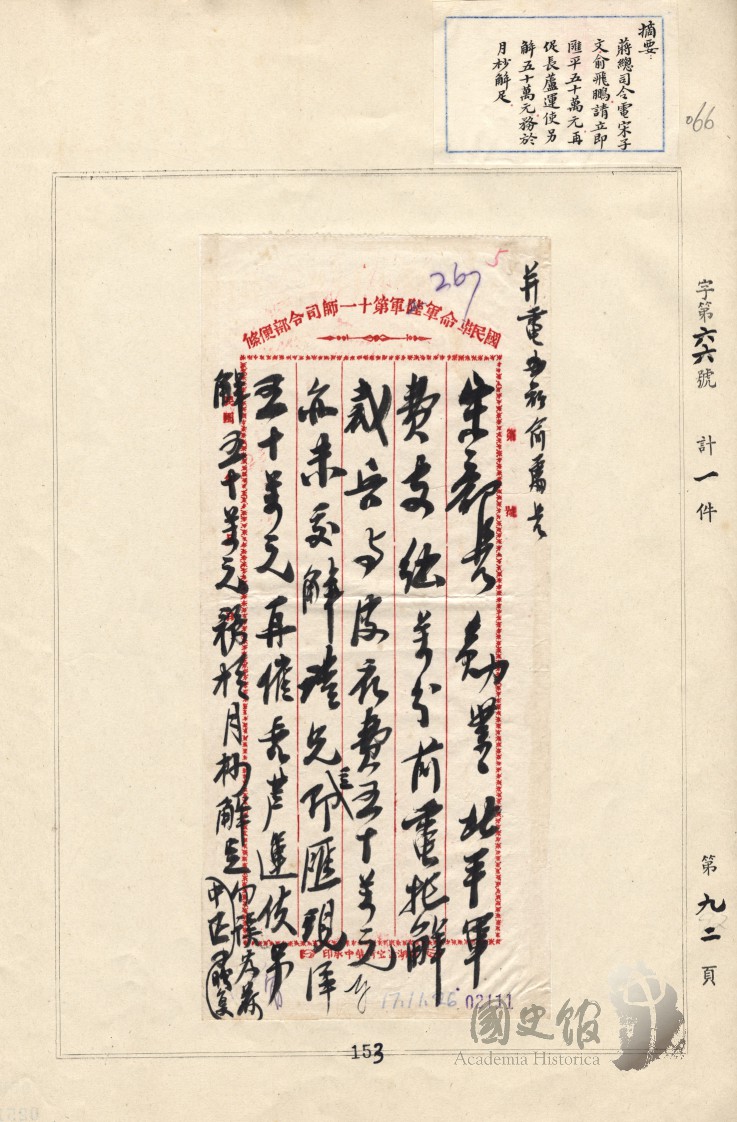 摘要：
蔣總司令電宋子
文俞飛鵬請立即
匯平五十萬元再
促長蘆運使另
解五十萬元務於
月杪解足
066
字第六六號 計一件
第九二頁
267
5
國民革命軍陸軍第十一師司令部便條
并電 俞
宋部長勛鑒北平軍
費支絀萬分前電托解
裁兵與皮衣費五十萬元
亦未交解請先匯現洋
五十萬元再催長蘆運使另
解五十萬元務於月杪解足
第 號
民國
17.11.26
02111
國史館
Academia Historica
153